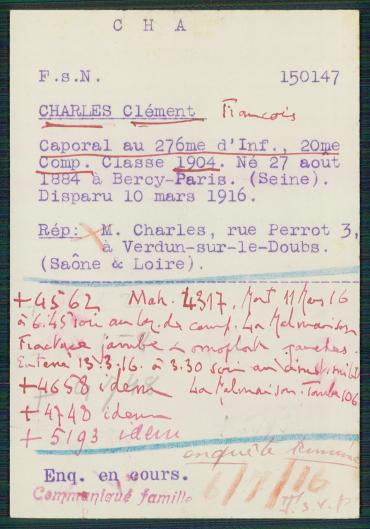 C H A
F.s.N. 150147
CHARLES Clément François
Caporal au 276me d'Inf., 20me
Comp. Classe 1904. Né 27 août
1884 à Bercy-Paris. (Seine).
Disparu 10 mars 1916.
Rép: M. Charles, rue Perrot 3,
à Verdun-sur-le-Doubs.
(Saône & Loire).
+4562 Mat. 4317, Mort 11 Mars 16
à 6.45 soir au laz. de camp. La Malmaison
Fracture jambe & omoplate gauches.
Enterré 13.3.16. à 3.30 soir au cimet. milit.
+4658 idem La Malmaison. Tombe 106
+4748 idem
+5193 idem
enquête terminée
Enq. en cours. 6/7/16
Communiqué famille